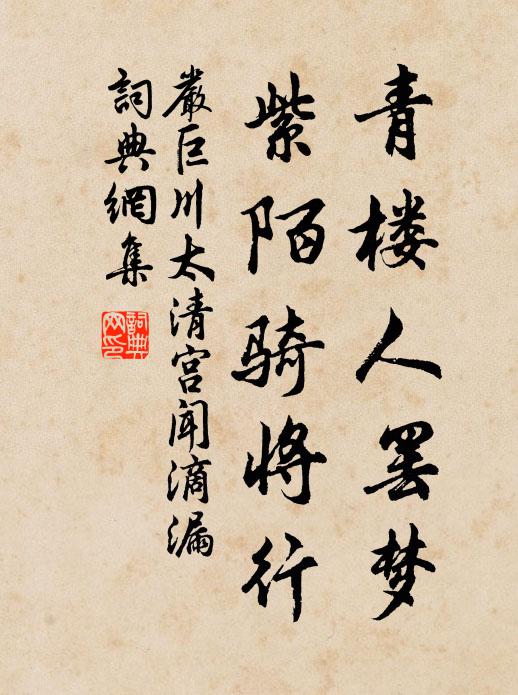 青楼人罢梦
紫陌骑将行
嚴巨川太清宫闻滴漏
詞典網集
詞典網印